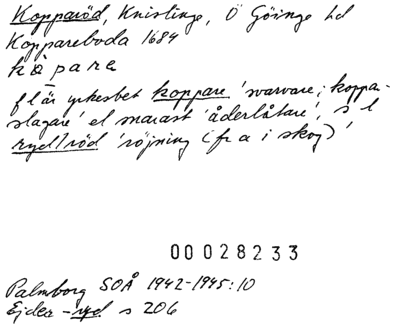 Kopparöd, Knislinge, Ö Göinge hd
Koppareboda 1684
kòpare
f l är yrkesbet koppare 'svarvare; koppar-
slagare' el snarast 'åderlåtare', s l
ryd/röd 'röjning (fr a i skog)'
00028233
Palmborg SOÅ 1942-1945:10
Ejder -ryd s 206